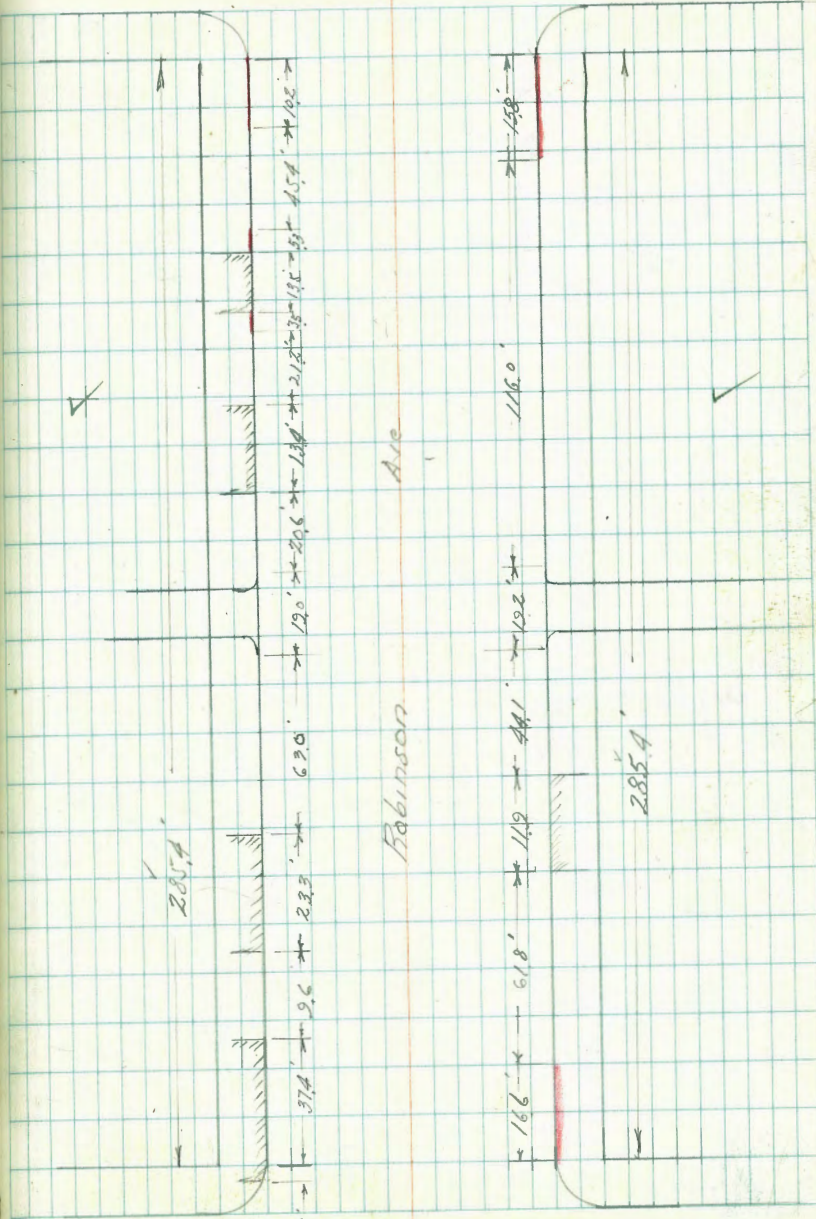 10.2'
45.4'
5.3'
13.5'
3.5'
21.2'
13.4'
20.6'
19.0'
63.0'
23.3'
9.6
37.4'
285.4'
Robinson Ave
15.8'
116.0'
19.2'
44.1'
11.9
61.8'
16.6'
285.4'